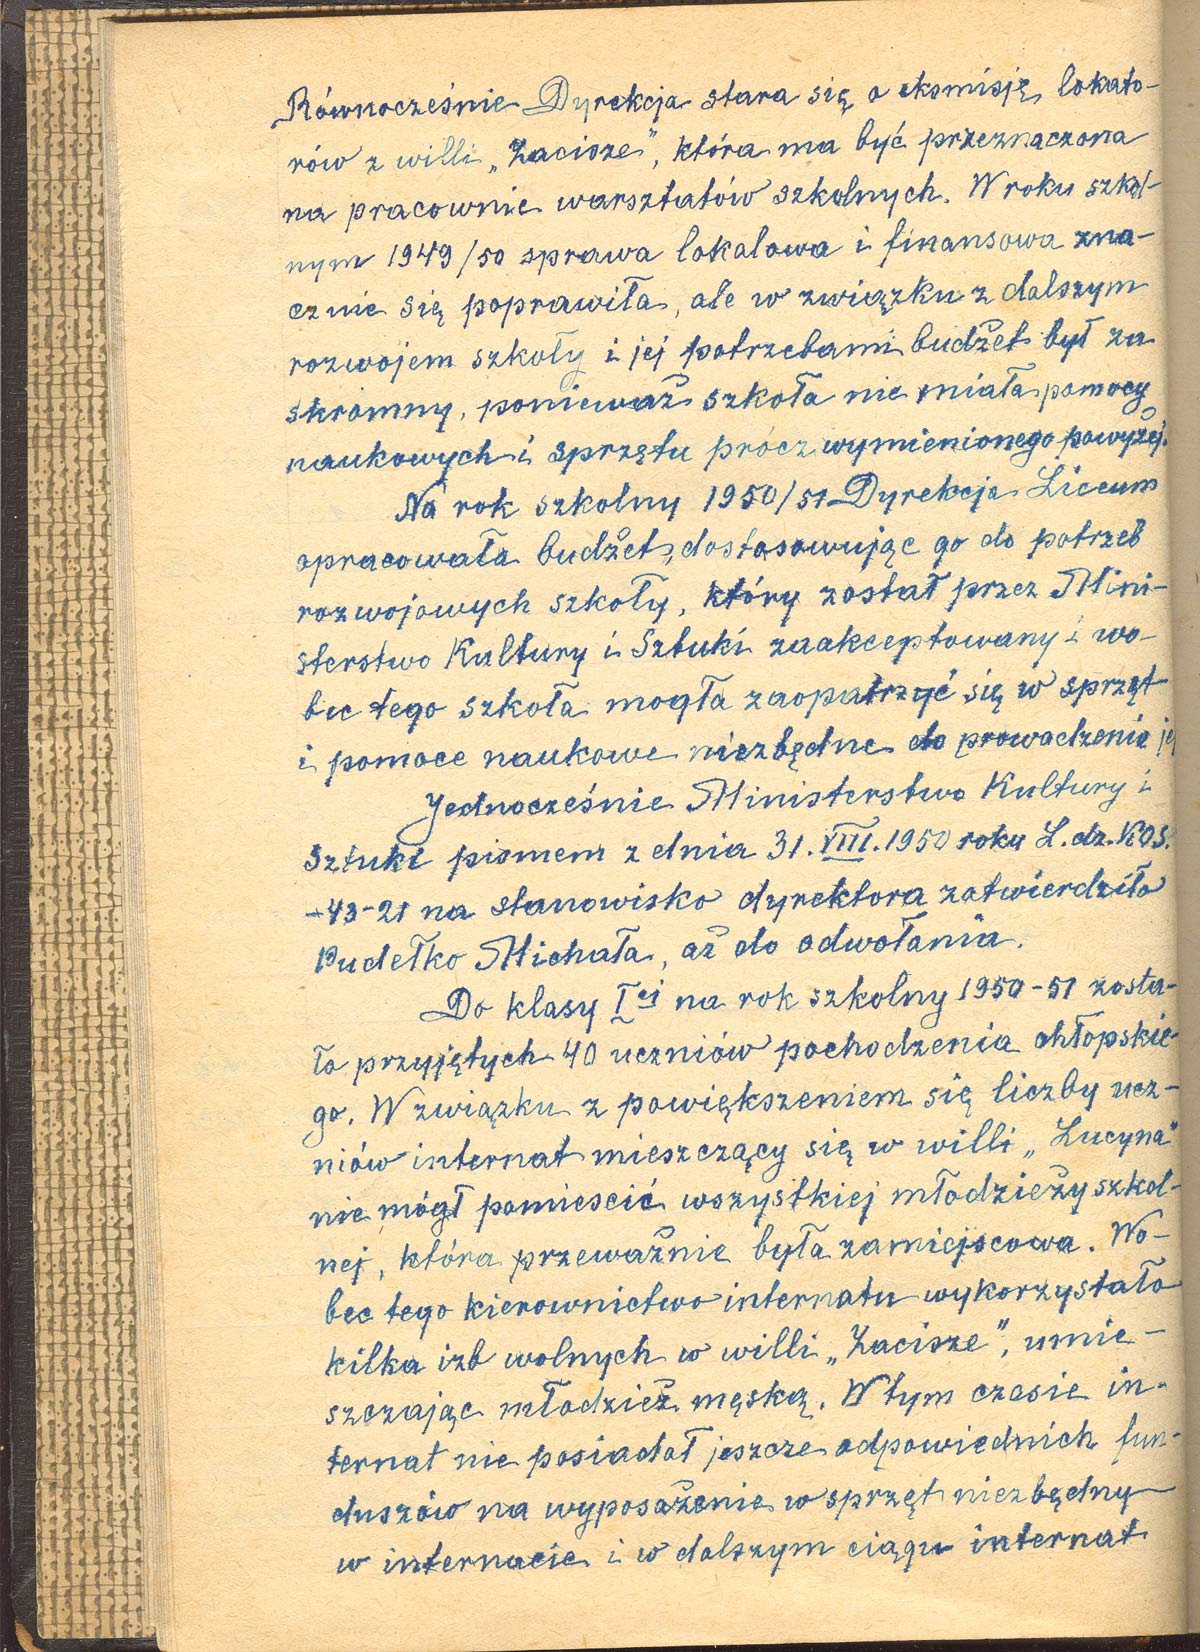 Równocześnie Dyrekcja stara się o eksmisję lokato-
rów z willi „Zacisze”, która ma być przeznaczona
na pracownie warsztatów szkolnych. W roku szkol-
nym 1949/50 sprawa lokalowa i finansowa zna-
cznie się poprawiła, ale w związku z dalszym
rozwojem szkoły i jej potrzebami budżet był za
skromny, ponieważ szkoła nie miała pomocy
naukowych i sprzętu prócz wymienionego powyżej.
Na rok szkolny 1950/51 Dyrekcja Liceum
opracowała budżet, dostosowując go do potrzeb
rozwojowych szkoły, który został przez Mini-
sterstwo Kultury i Sztuki zaakceptowany i wo-
bec tego szkoła mogła zaopatrzyć się w sprzęt
i pomoce naukowe niezbędne do prowadzenia jej
Jednocześnie Ministerstwo Kultury i
Sztuki pismem z dnia 31.VIII.1950 roku L.dz.KOS.
-43-21 na stanowisko dyrektora zatwierdziło
Pudełko Michała, aż do odwołania.
Do klasy I ej na rok szkolny 1950-51 zosta-
ło przyjętych 40 uczniów pochodzenia chłopskie-
go. W związku z powiększeniem się liczby ucz-
niów internat mieszczący się w willi „Lucyna”
nie mógł pomieścić wszystkiej młodzieży szkol-
nej, która przeważnie była zamiejscowa. Wo-
bec tego kierownictwo internatu wykorzystało
kilka izb wolnych w willi „Zacisze”, umie-
szczając młodzież męską. W tym czasie in-
ternat nie posiadał jeszcze odpowiednich fun-
duszów na wyposażenie w sprzęt niezbędny
w internacie i w dalszym ciągu internat